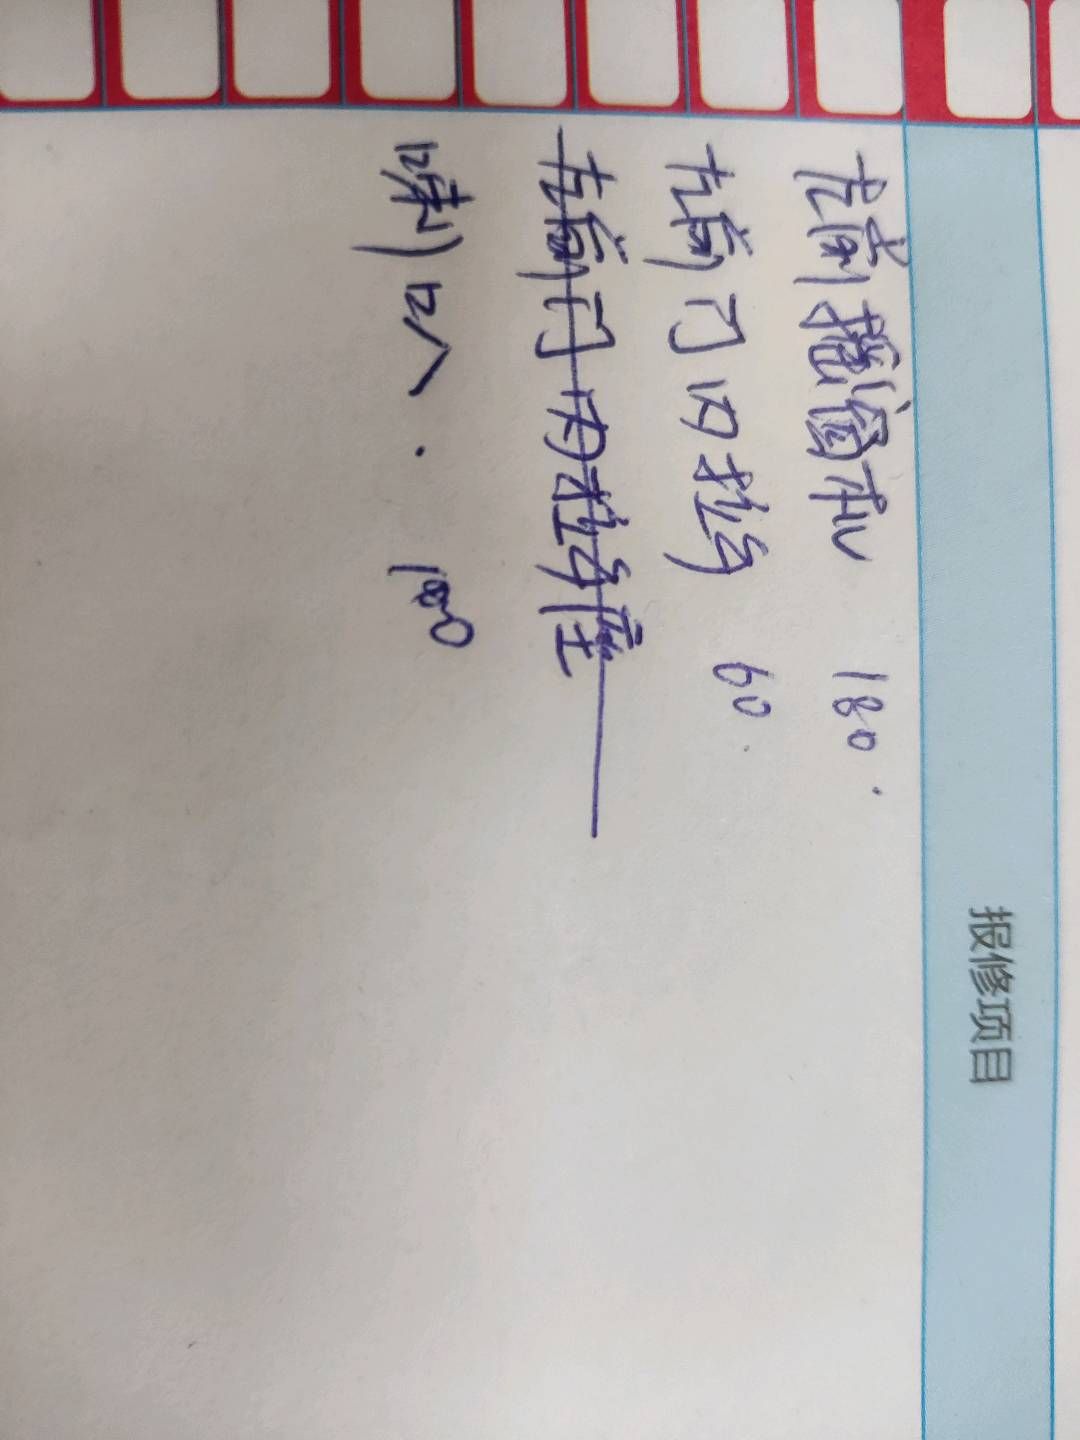 报修项目
左前摇窗机 180.
左前门内拉手 60.
左前门内拉手座
喇叭. 100